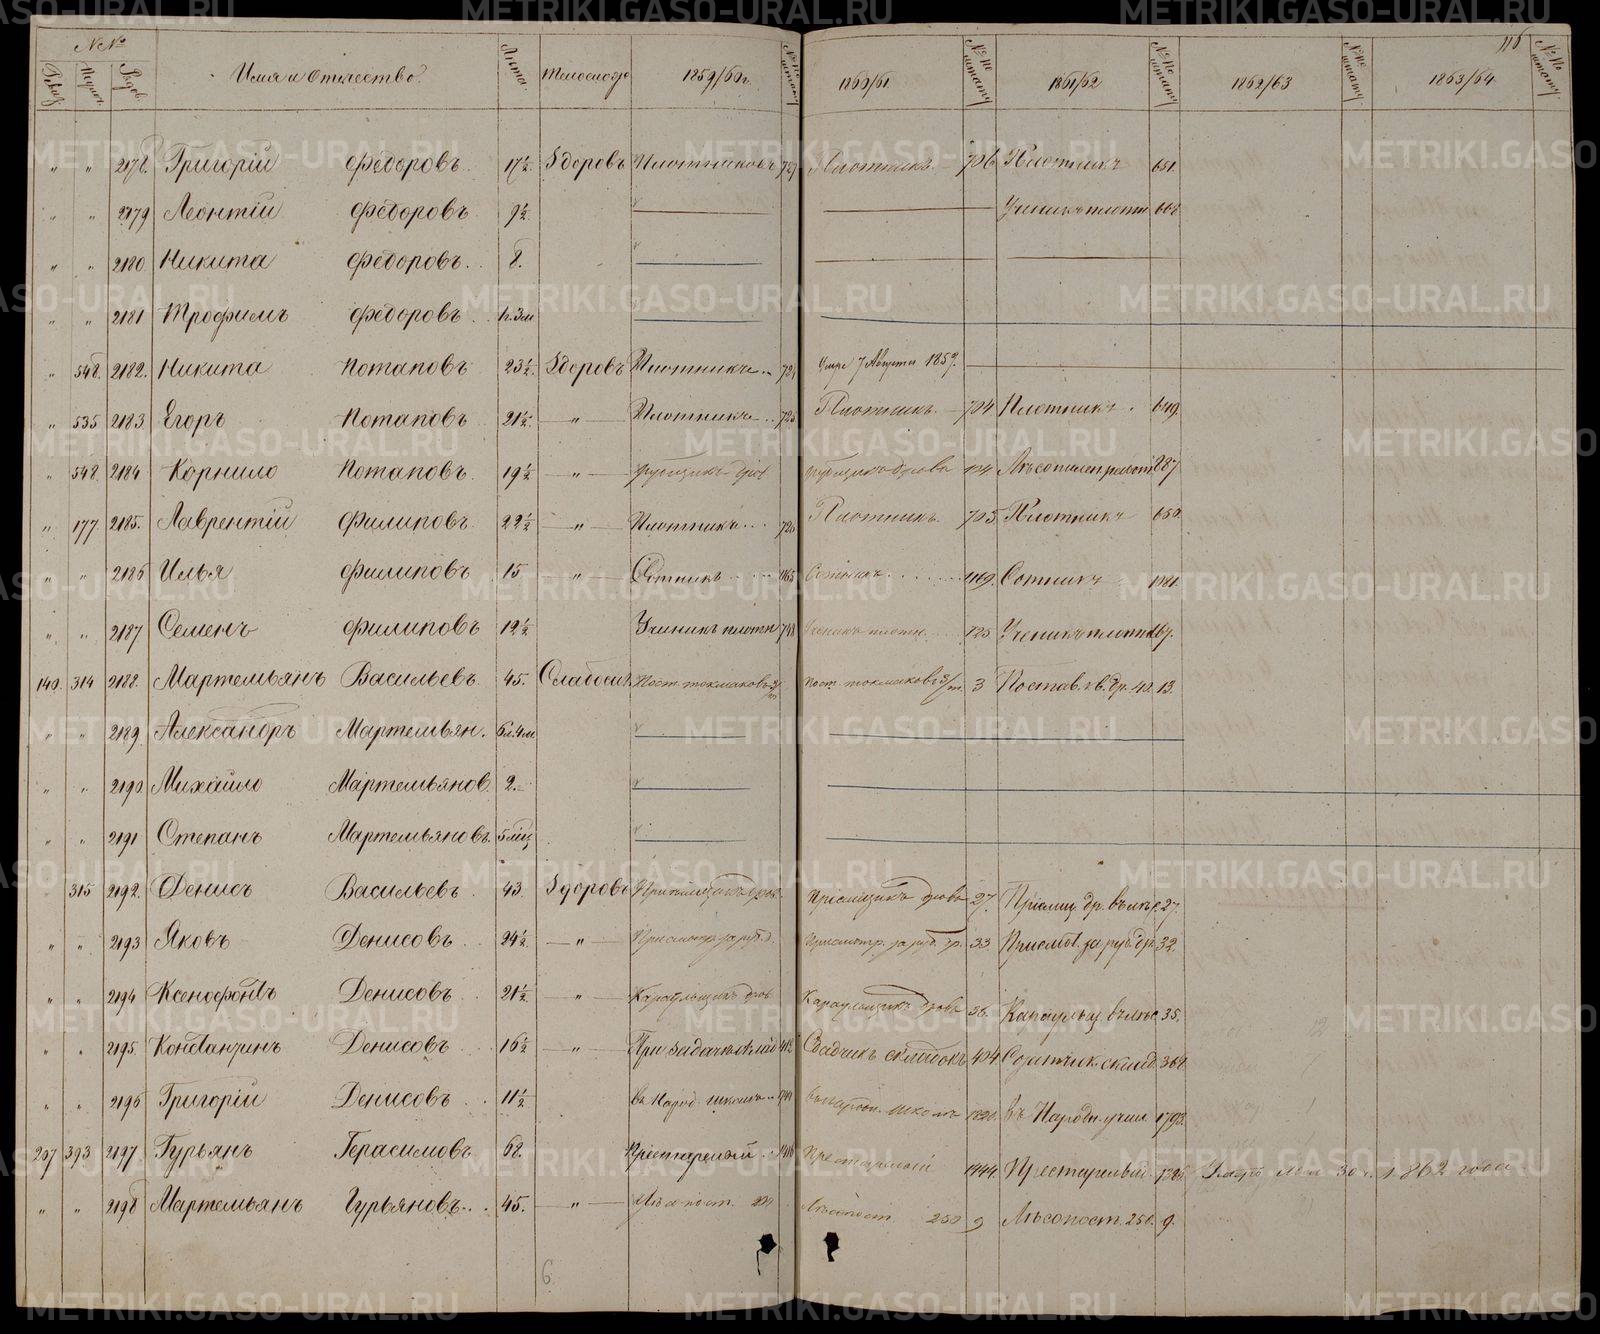 116
№№ Имя и Отчество. Лѣта. Тѣлослож. 1859/60 г. №№ по штату 1860/61. №№ по штату 1861/62 №№ по штату 1862/63 №№ по штату 1863/64 №№ по штату
Ревиз. Ряд.
" " 2178. Григорій Ѳедоровъ. 17½ Здоровъ Плотниковъ 727 Плотникъ. 706 Плотникъ 651.
" " 2179 Леонтій Ѳедоровъ 9½ Ученикъ плотн. 668
" " 2180 Никита Ѳедоровъ. 8.
" " 2181 Трофимъ Ѳедоровъ. 1г.3м
" 548. 2182. Никита Потаповъ 23½. Здоровъ Плотникъ.. 721 Умре 7 Августа 1859.
" 535 2183 Егоръ Потаповъ 21½ " Плотникъ .. 725 Плотникъ. 704 Плотникъ. 649.
" 548. 2184 Корнило Потаповъ. 19½ " рубщикъ дров рубщикъ дровъ 124 887
" 177 2185. Лаврентій Филиповъ 22½ " Плотникъ... 726 Плотникъ. 705 Плотникъ 650.
" " 2186 Илья Филиповъ 15 " Сотникъ..... 1165 Сотникъ....... 1169 Сотникъ 1181.
" " 2187 Семенъ Филиповъ 12½ Ученикъ плотн 748 Ученикъ плотн. 725 Ученикъ плотн 667.
140. 314 2188. Мартемьянъ Васильевъ. 45. Слабосил. Пост. токмаковъ пост. токмаковъ 3 Постав. 13.
" " 2189. Александръ Мартемьян. 6л.4м
" " 2190 Михайло Мартемьянов. 2.
" " 2191 Степанъ Мартемьяновъ. 5 мѣц
315 2192. Денисъ Васильевъ. 43. Здоровъ Пріемщикъ дров. Пріемщикъ дровъ 27. Пріемщ. др. въ лѣс. 27.
" " 2193 Яковъ Денисовъ. 24½ " Присмотр. за руб. д. Присмотр. за руб. др. 33 Присмот. за руб. др. 32.
" " 2194 Ксенофонтъ Денисовъ. 21½ " Караульщикъ дров Караульщикъ дровъ 36. Караульщ. въ лѣс. 35.
" " 2195. Константинъ Денисовъ 16½ " При задачѣ 412 404 368
" " 2196 Григорій Денисовъ. 11½ въ Народ. школѣ.. въ народн. школѣ 1820. въ Народн. учил. 1793.
207 393 2197. Гурьянъ Герасимовъ. 68. Престарелый.. Престарелый 1444. Престарелый 30 1862 года.
" " 2198 Мартемьянъ Гурьяновъ... 45. " Лѣсопост. Лѣсопост. 250 9 Лѣсопост. 251. 9.
6
METRIKI.GASO-URAL.RU